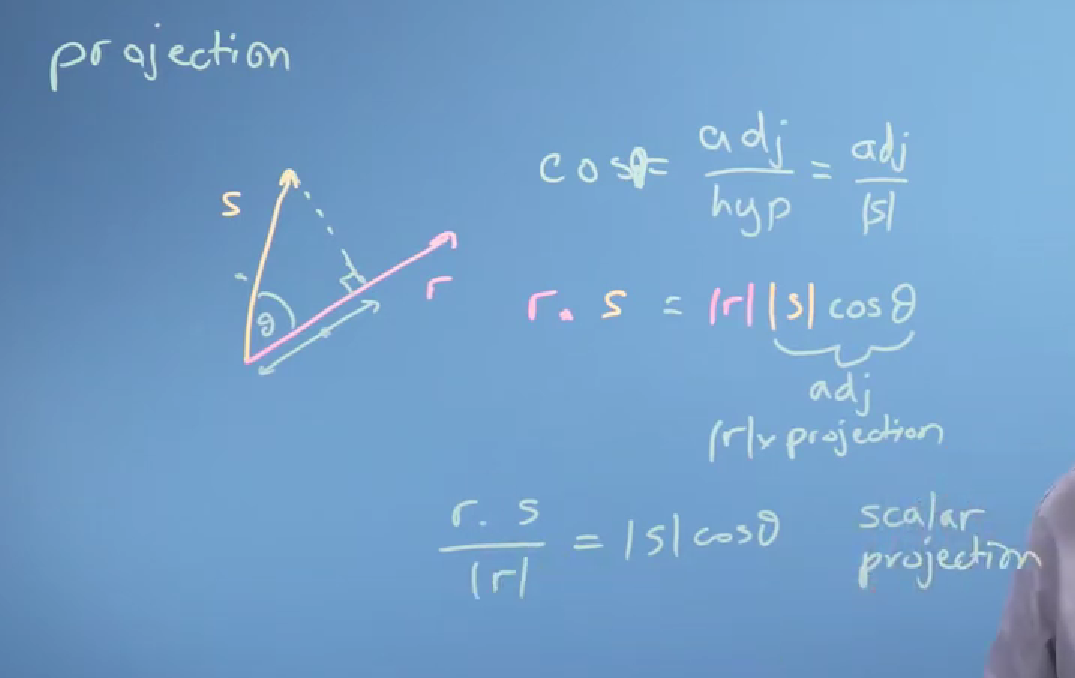 projection
cosθ = adj/hyp = adj/|s|
s
r
θ
r. s = |r||s| cosθ
adj
|r|x projection
r. s/|r| = |s| cosθ
scalar
projection